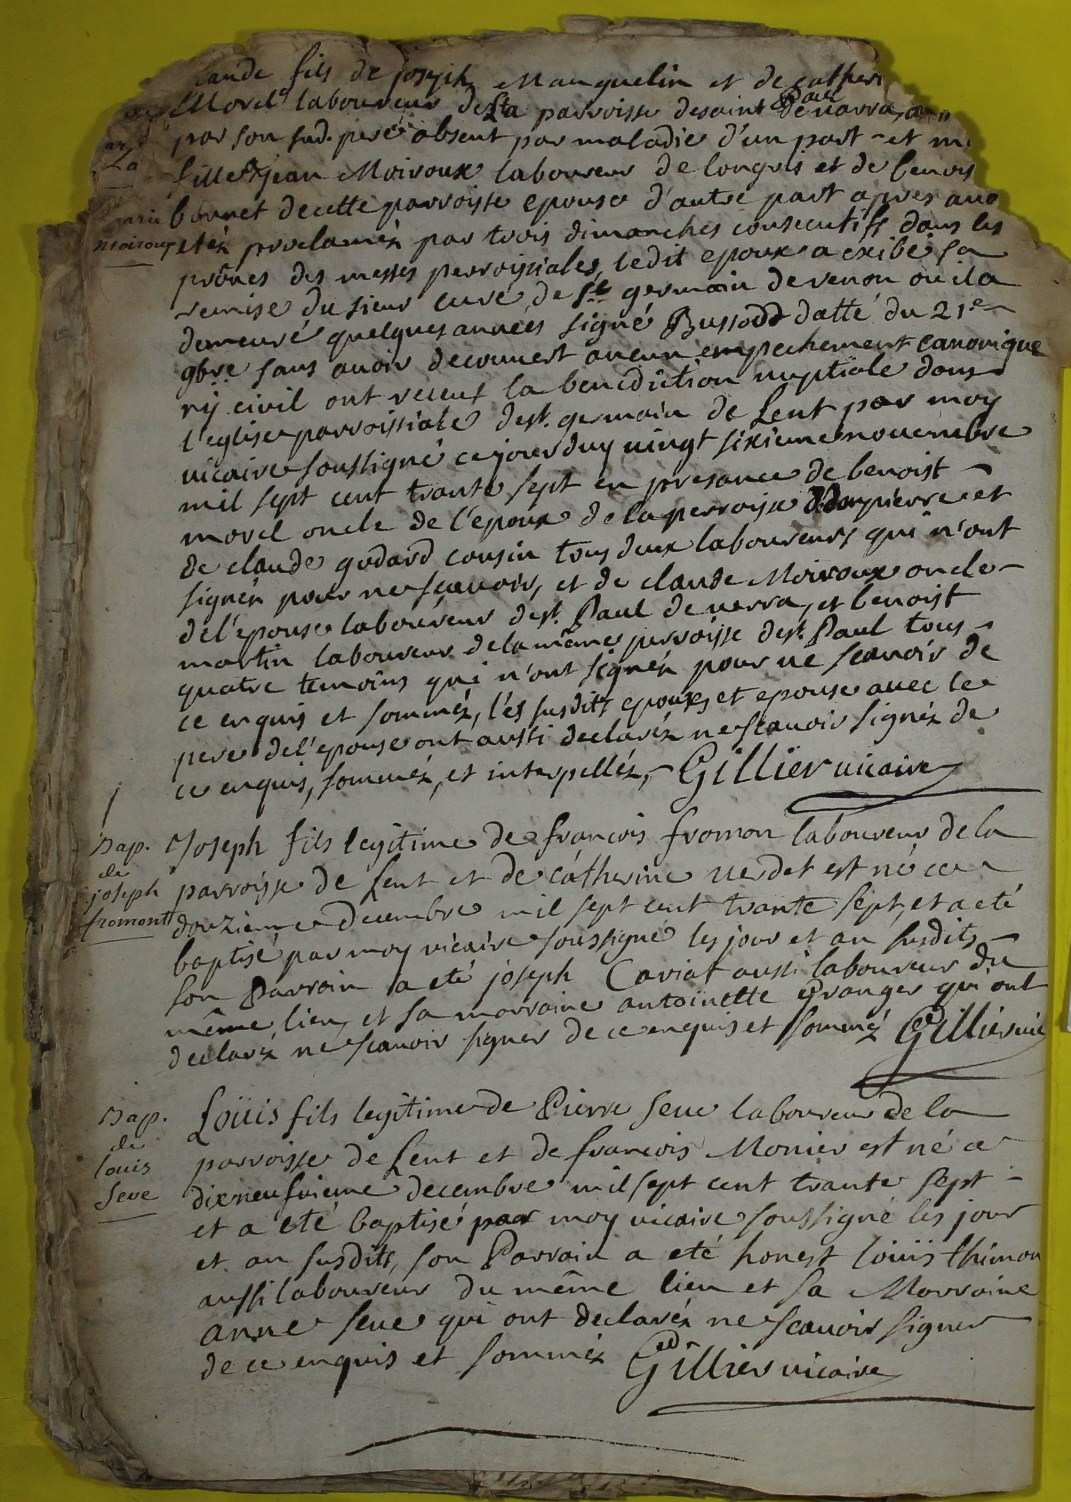 claude fils de joseph Manguelin et de catheri
Morel laboureur de la parroisse de saint Paul de varra,
par son sud. pere absent par maladie d'un part et
fille de jean Moiroux laboureur de longris et de benois
marie
moiroux
bonnet de cette parroisse epouse d'autre part apres avo
eték proclaméz par trois dimanches consecutifs dans les
prônes des messes perroissiales, ledit epoux a exibé sa
remise du sieur curé de St germain de renon ou il a
demeuré quelques années signé Bussodd datté du 21e
9bre sans avoir decouvert aucun empechement canonique
ny civil ont receut la benediction nuptiale dans
l'eglise parroissiale de st. germain de Lent par moy
vicaire soussigné cejourduy vingt sixieme novembre
mil sept cent trante sept en presance de benoist
morel oncle de l'epoux de la perroisse de dompierre et
de claude godard cousin tous deux laboureurs qui n'ont
signéz pour ne scavoir, et de claude Moiroux oncle
de l'epouse laboureur de st. Paul de verra, et benoist
martin laboureur de la même perroisse de st. Paul tous
quatre temoins qui n'ont signéz pour ne scavoir de
ce enquis et somméz, les susdits epoux et epouse avec le
pere de l'epouse ont aussi declaréz ne scavoir signéz de
ce enquis, somméz, et interpelléz, Gillier vicaire
Bap.
de
joseph
fromont
Joseph fils legitime de francois fromon laboureur de la
parroisse de Lent et de catherine verdet est né ce
douzieme decembre mil sept cent trante sept, et a eté
baptisé par moy vicaire soussigné les jour et an susdits
son Parrain a eté joseph Cariat aussi laboureur du
même lieu, et sa marraine antoinette Granger qui ont
declaréz ne scavoir signer de ce enquis et somméz Gillier vic
Bap.
de
louis
Seve
Loüis fils legitime de Pierre Seve laboureur de la
parroisse de Lent et de francois Monier est né ce
dixneufvieme decembre mil sept cent trante sept
et a eté baptisé par moy vicaire soussigné les jour
et an susdits, son Parrain a eté honest loüis thimon
aussi laboureur du même lieu et sa Marraine
anne Seve qui ont declaréz ne scavoir signer
de ce enquis et somméz Gillier vicaire